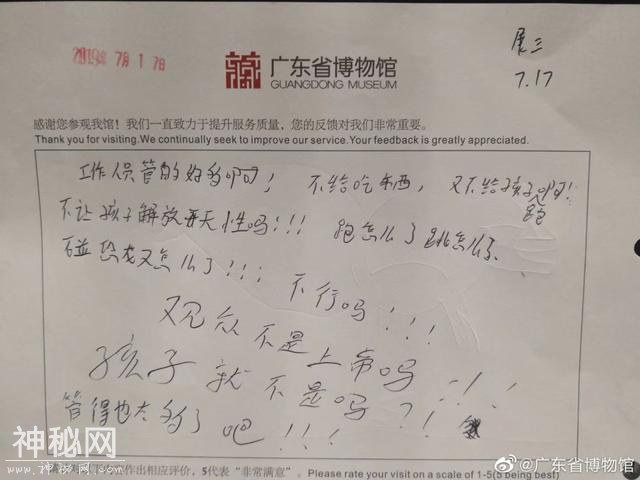 2019年 7月 17日
展三
7.17
广东省博物馆
GUANGDONG MUSEUM
感谢您参观我馆！我们一直致力于提升服务质量，您的反馈对我们非常重要。
Thank you for visiting.We continually seek to improve our service.Your feedback is greatly appreciated.
工作人员管的好多啊！ 不给吃东西，又不给孩子跑啊！
不让孩子解放天性吗！！！ 跑怎么了 跳怎么了
碰恐龙又怎么了！！！ 不行吗！！！
观众不是上帝吗
孩子就不是吗？！！！
管得也太多了吧！！！
作出相应评价，5代表“非常满意”。Please rate your visit on a scale of 1-5(5 being best)
神秘网
WWW.神秘网.COM
@广东省博物馆